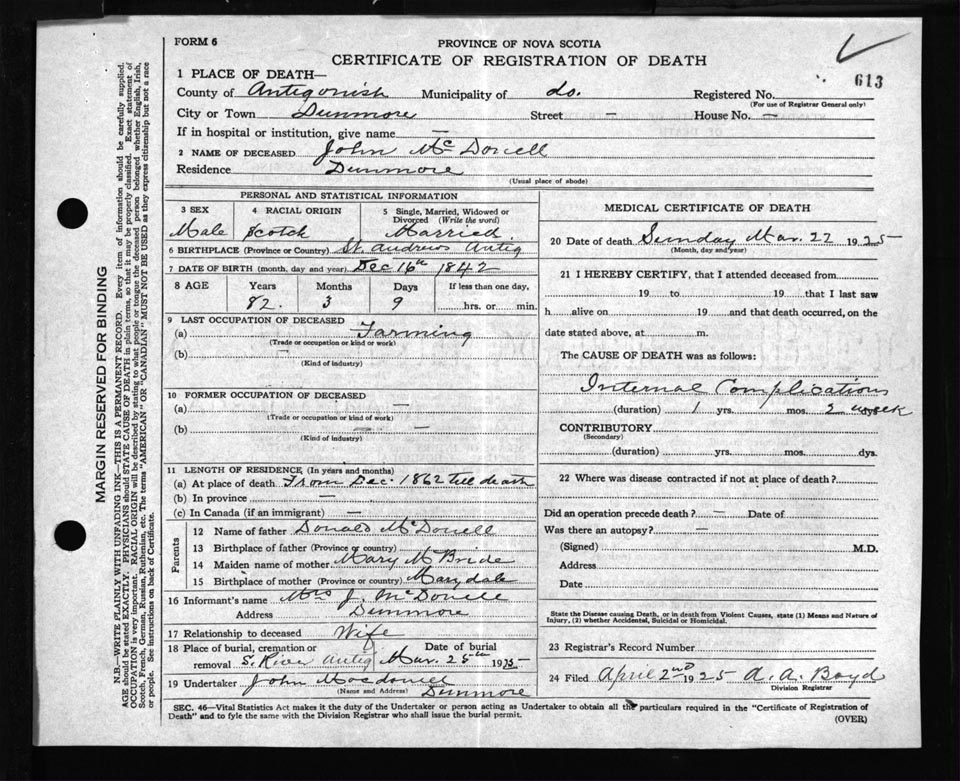 FORM 6
PROVINCE OF NOVA SCOTIA
CERTIFICATE OF REGISTRATION OF DEATH
613
1 PLACE OF DEATH—
County of Antigonish Municipality of do. Registered No.
(For use of Registrar General only)
City or Town Dunmore Street — House No. —
If in hospital or institution, give name —
2 NAME OF DECEASED John McDonell
Residence Dunmore
(Usual place of abode)
PERSONAL AND STATISTICAL INFORMATION
3 SEX 4 RACIAL ORIGIN 5 Single, Married, Widowed or Divorced (Write the word)
Male Scotch Married
6 BIRTHPLACE (Province or Country) St. Andrews Antig
7 DATE OF BIRTH (month, day and year) Dec 16th 1842
8 AGE Years Months Days If less than one day,
82. 3 9 hrs. or min.
9 LAST OCCUPATION OF DECEASED
(a) Farming
(Trade or occupation or kind or work)
(b) —
(Kind of industry)
10 FORMER OCCUPATION OF DECEASED
(a) —
(Trade or occupation or kind of work)
(b) —
(Kind of industry)
11 LENGTH OF RESIDENCE (In years and months)
(a) At place of death From Dec. 1862 till death
(b) In province —
(c) In Canada (if an immigrant) —
Parents
12 Name of father Donald McDonell
13 Birthplace of father (Province or country)
14 Maiden name of mother Mary McBride
15 Birthplace of mother (Province or country) Marydale
16 Informant's name Mrs J. McDonell
Address Dunmore
17 Relationship to deceased Wife
18 Place of burial, cremation or removal Date of burial
S. River Antig Mar. 25th 1925
19 Undertaker John Macdonell
(Name and Address) Dunmore
MEDICAL CERTIFICATE OF DEATH
20 Date of death Sunday Mar. 22 1925
(Month, day and year)
21 I HEREBY CERTIFY, that I attended deceased from
19 to 19 that I last saw
h alive on 19 and that death occurred, on the
date stated above, at m.
The CAUSE OF DEATH was as follows:
Internal Complications
(duration) 1 yrs. mos. 2 week dys.
CONTRIBUTORY
(Secondary)
(duration) yrs. mos. dys.
22 Where was disease contracted if not at place of death?
Did an operation precede death? — Date of
Was there an autopsy? —
(Signed) M.D.
Address
Date
State the Disease causing Death, or in death from Violent Causes, state (1) Means and Nature of
Injury, (2) whether Accidental, Suicidal or Homicidal.
23 Registrar's Record Number
24 Filed April 2nd 1925 A. A. Boyd
Division Registrar
SEC. 46—Vital Statistics Act makes it the duty of the Undertaker or person acting as Undertaker to obtain all the particulars required in the "Certificate of Registration of
Death" and to fyle the same with the Division Registrar who shall issue the burial permit.
(OVER)
MARGIN RESERVED FOR BINDING
N.B.—WRITE PLAINLY WITH UNFADING INK—THIS IS A PERMANENT RECORD. Every item of information should be carefully supplied.
AGE should be stated EXACTLY. PHYSICIANS should STATE CAUSE OF DEATH in plain terms, so that it may be properly classified. Exact statement of
OCCUPATION is very important. RACIAL ORIGIN will be described by stating to what people or tongue the deceased person belonged whether English, Irish,
Scotch, French, German, Russian, Ruthenian, etc. The terms "AMERICAN" OR "CANADIAN" MUST NOT BE USED as they express citizenship but not a race
or people. See instructions on back of Certificate.